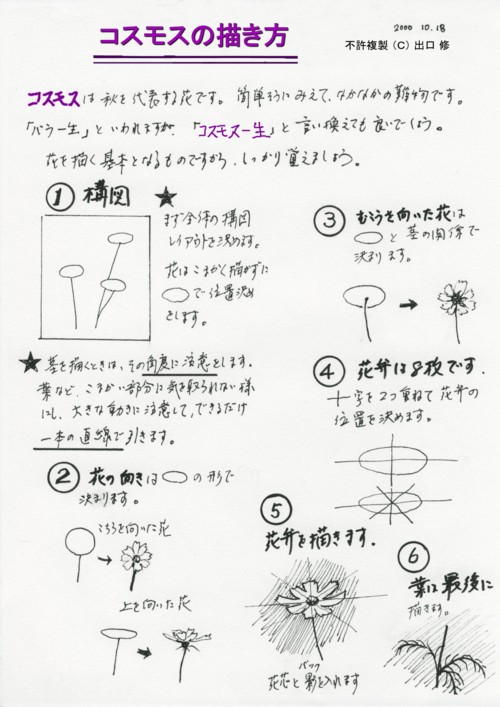 2000 10.18
コスモスの描き方
不許複製（C）出口 修
コスモスは秋を代表する花です。簡単そうにみえて、なかなかの難物です。
「バラ一生」といわれますが、「コスモス一生」と言い換えても良いでしょう。
花を描く基本となるものですから、しっかり覚えましょう。
① 構図 ★
まず全体の構図
レイアウトを決めます。
花はこまかく描かずに
で位置決め
をします。
★ 茎を描くときは、その角度に注意をします。
葉など、こまかい部分に気を取られない様
にし、大きな動きに注意して、できるだけ
一本の直線で引きます。
② 花の向きは の形で
決まります。
こちらを向いた花
上を向いた花
③ むこうを向いた花は
と茎の関係で
決まります。
④ 花弁は8枚です。
十字を2つ重ねて花弁の
位置を決めます。
⑤
花弁を描きます．
バック
花芯と影を入れます
⑥
葉は最後に
描きます。